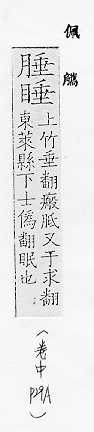 佩觿
腄睡
上竹垂翻瘢胝又于求翻
東萊縣下士偽翻眠也
(卷中 P29A)